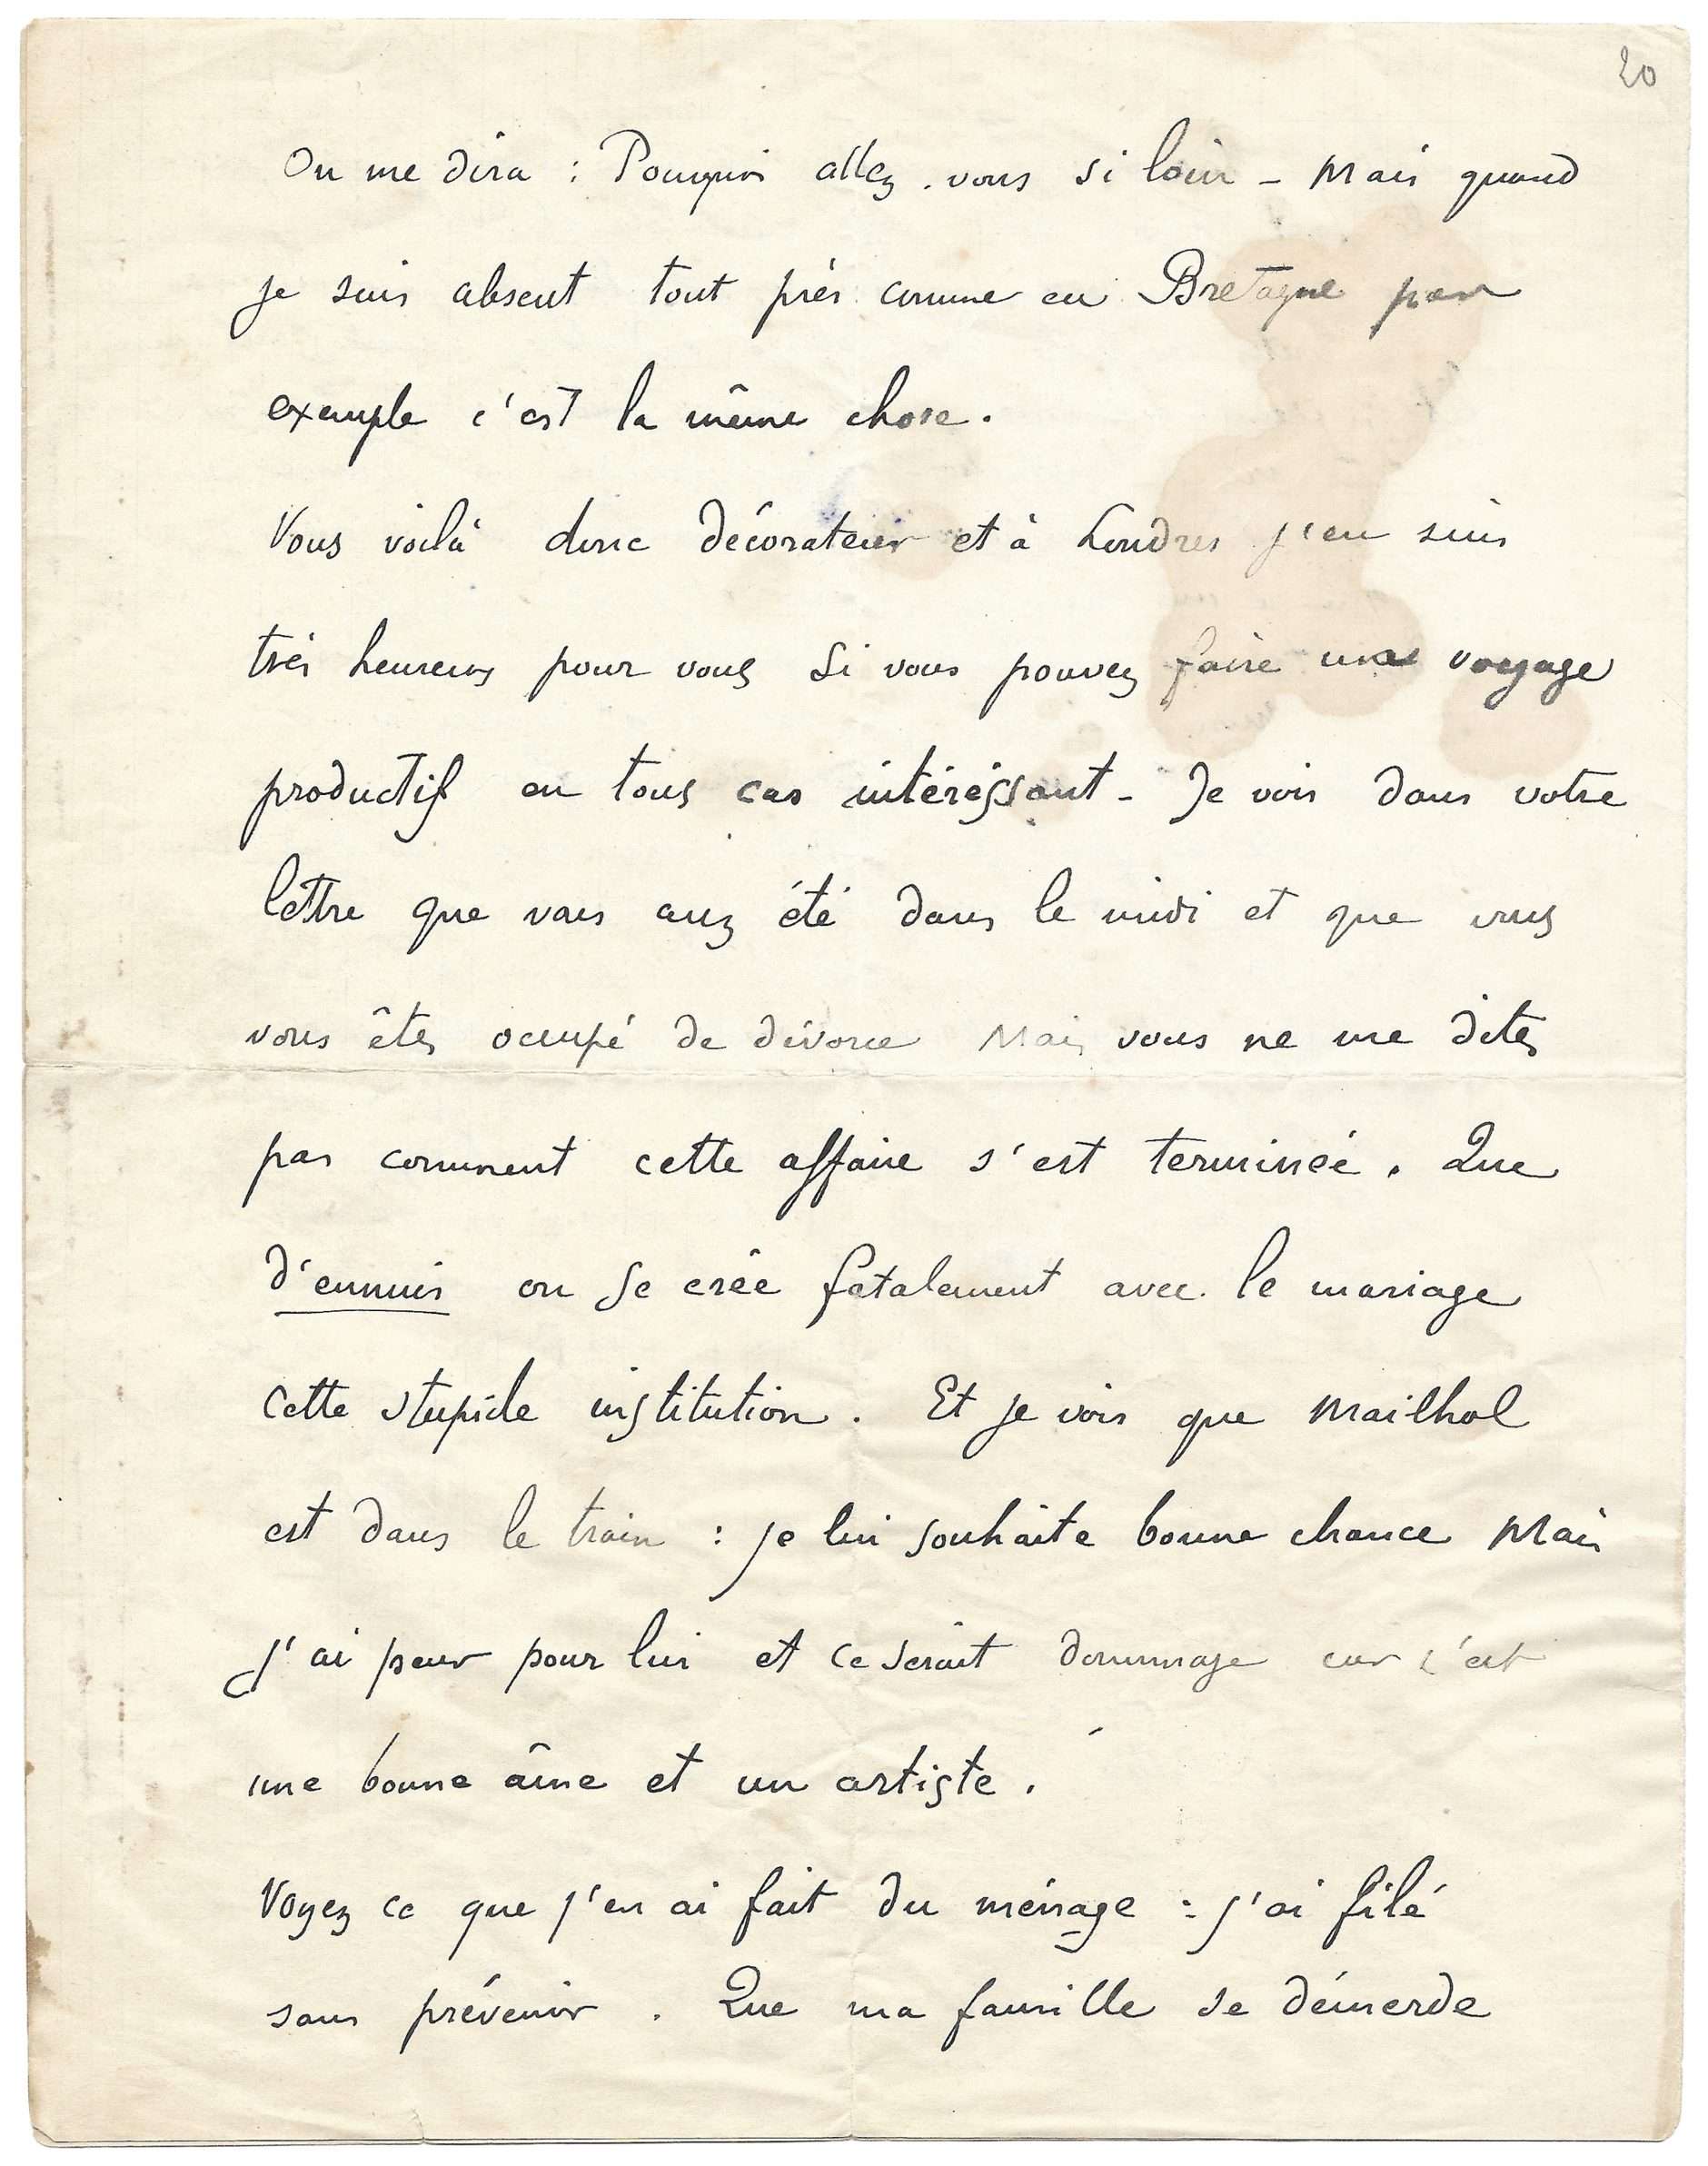 20
On me dira : Pourquoi allez-vous si loin – Mais quand
je suis absent tout près comme en Bretagne par
exemple c'est la même chose.
Vous voilà donc décorateur et à Londres j'en suis
très heureux pour vous si vous pouvez faire un voyage
productif en tous cas intéressant – Je vois dans votre
lettre que vous avez été dans le midi et que vous
vous êtes occupé de divorce Mais vous ne me dites
pas comment cette affaire s'est terminée. Que
d'ennuis on se crée fatalement avec le mariage
cette stupide institution. Et je vois que Mailhol
est dans le train : je lui souhaite bonne chance Mais
j'ai peur pour lui et ce serait dommage car c'est
une bonne âme et un artiste.
Voyez ce que j'en ai fait du ménage : j'ai filé
sans prévenir. Que ma famille se démerde